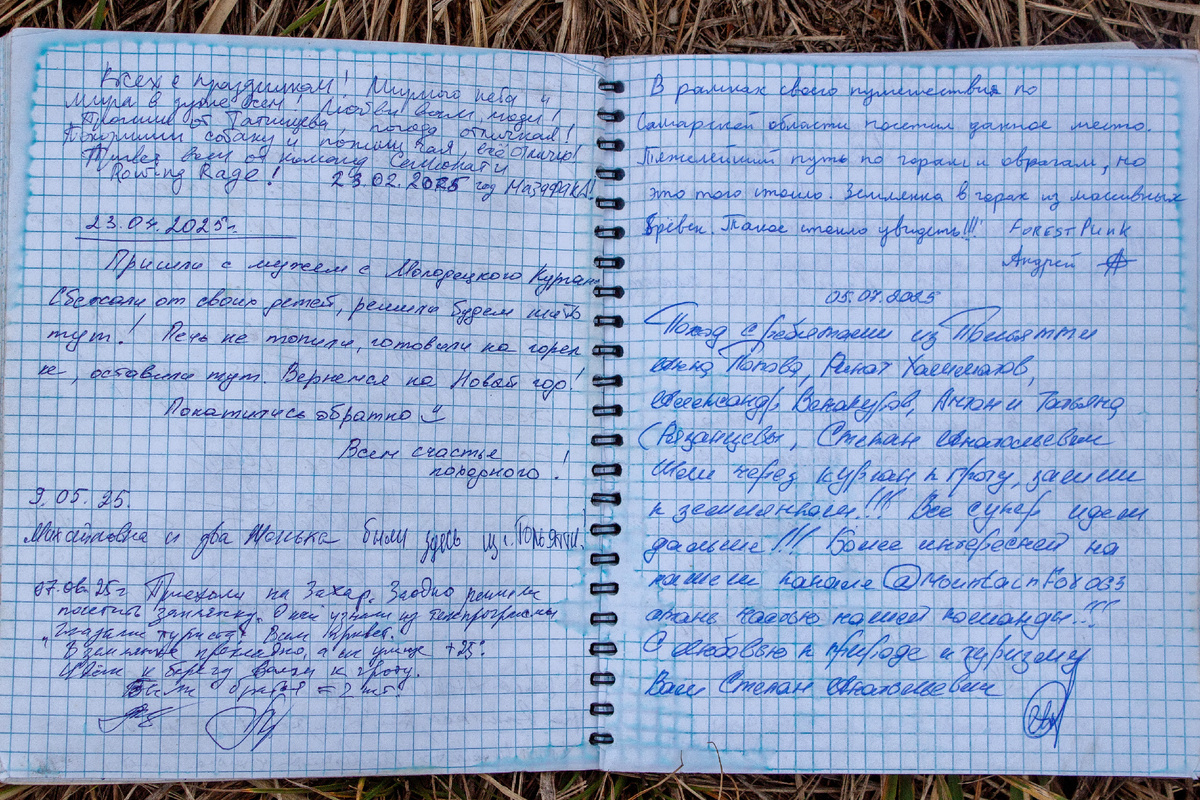 Всех с праздником! Мирного неба и
мира в душе всем! Любви всем, люди!
Протопили от Татищева, погода отличная!
Покормили собаку и попили чая, всё отлично!
Привет всем от команды
Rowing Rage! 23.02.2025 год МАЗАФАКА!
23.04.2025г.
Пришли с мужем с Молодецкого Кургана
Сбежали от своих детей, решили будем жить
тут! Печь не топили, готовили на горел
ке, оставили тут. Вернемся на Новый год!
Покатились обратно
Всем счастья
походного!
9.05.25.
Михайловна и два Жонька были здесь из г. Тольятти!
07.06.25г Приехали на Захар. Заодно решили
посетить землянку. О ней узнали из телепрограммы
"Глазами туриста" Всем привет.
В землянке прохладно, а на улице +25°.
Идём к берегу Волги к гроту.
= 2 шт.
В рамках своего путешествия по
Самарской области посетил данное место.
Тяжелейший путь по горам и оврагам, но
это того стоило. Землянка в горах из массивных
брёвен. Такое стоило увидеть!!! FORESTPUNK
Андрей
05.07.2025
Поход с ребятами из Тольятти
Анна Попова, Ринат
Александр Винокуров, Антон и Татьяна
Рязанцевы, Степан Анатольевич
Шли через курган к гроту, зашли
к землянкам!!! Все супер идем
дальше!!! Более интересней на
нашем канале @MountainFox063
стань частью нашей команды!!!
С любовью к природе и туризму
Ваш Степан Анатольевич